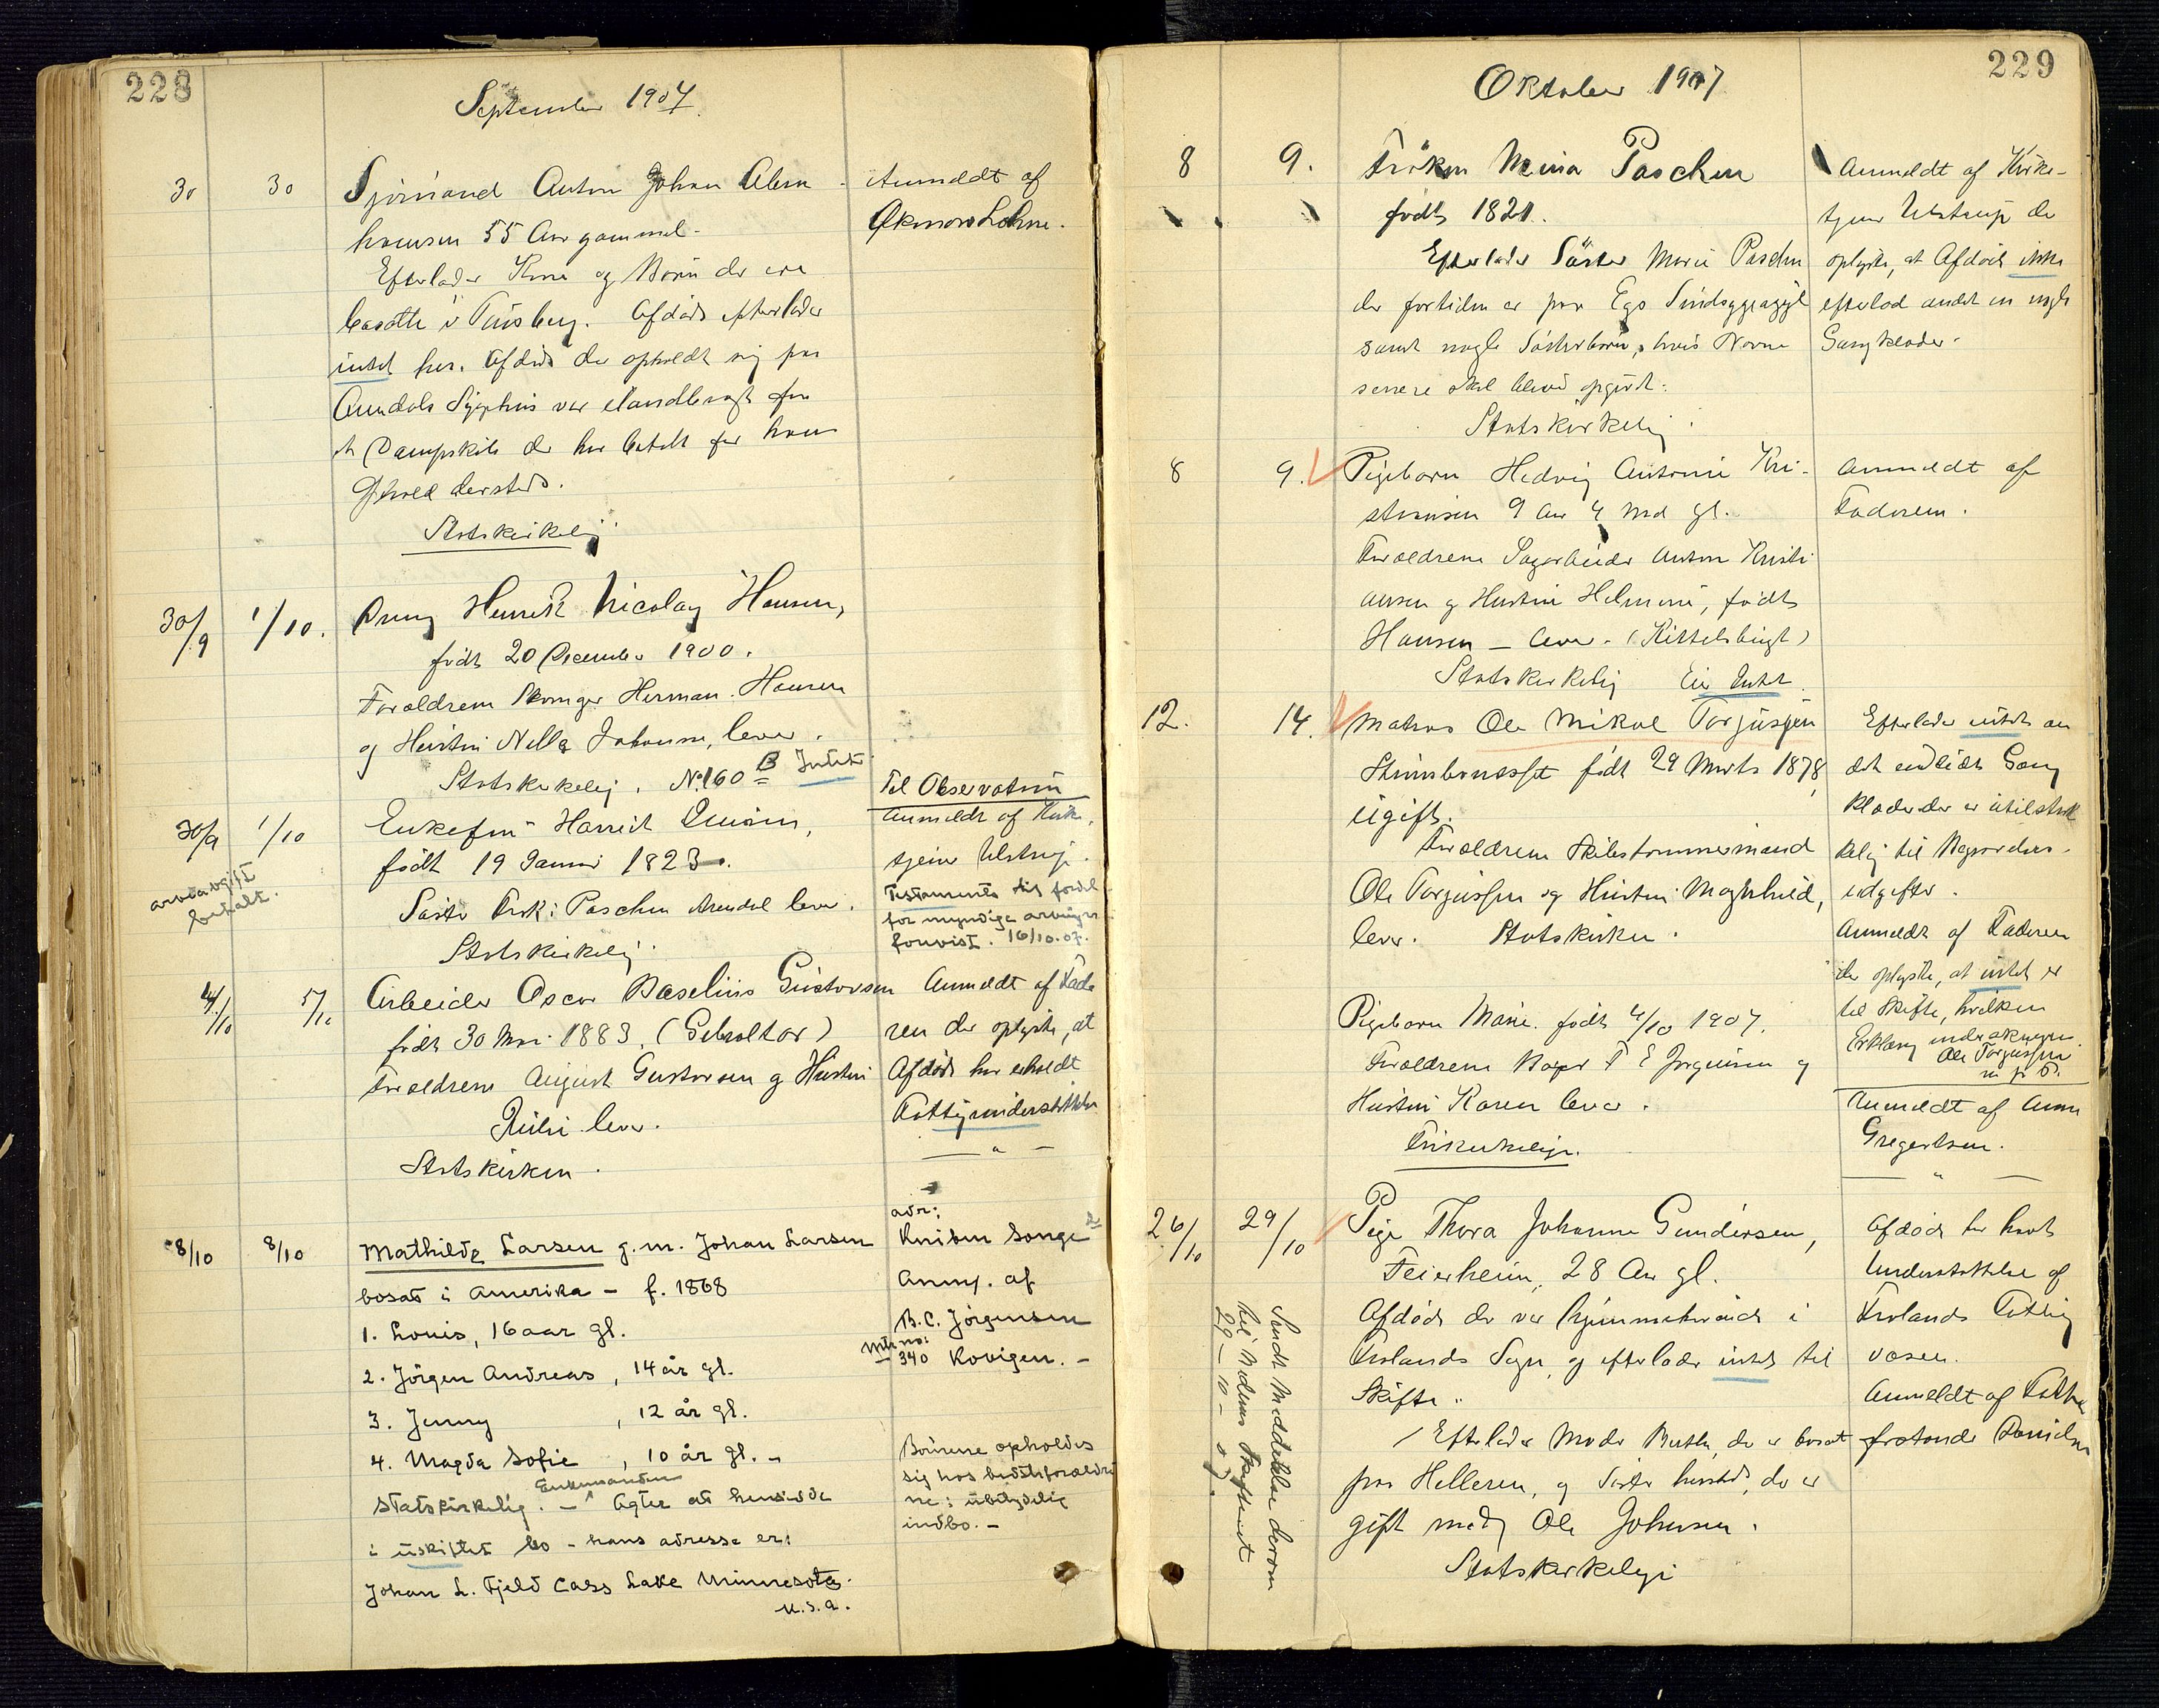 228
September 1907.
30 30 Sjömand Anton Johan Abra-
hamsen 55 Aar gammel.
Efterlader Kone og Börn der ere
bosatte i Tönsberg. Afdöde efterlader
intet her. Afdöde der opholdt sig paa
Arendals Sygehus var ilandbragt fra
et Dampskib der har betalt for hans
Ophold dersteds.
Statskirkelig
Anmeldt af
Økonom Lohne.
30/9 1/10. Dreng Henrik Nicolay Hansen,
födt 20 December 1900.
Forældrene Herman Hansen
og Hustru Nella Johanne, lever.
Statskirkelig. No 160 B Intet
30/9 1/10 Enkefru Harriet
födt 19 Januar 1823.
Söster Frök: Paschen Arendal lever.
Statskirkelig.
arveavgift
betalt.
Til Observation
Anmeldt af Kirke-
tjener Ulstrup.
Testamente til fordel
for myndige arvinger
forevist. 16/10.07.
4/10 5/10 Arbeider Oscar Baselius Gustavsen
födt 30 Mai 1883. (Gibraltar)
Forældrene August Gustavsen og Hustru
lever.
Statskirken.
Anmeldt af Fade
ren der oplyste, at
Afdöde har erholdt
Fattigunderstöttelse
— " —
8/10 8/10 Mathilde Larsen g.m. Johan Larsen
bosat i Amerika - f. 1868
1. Louis, 16 aar gl.
2. Jörgen Andreas, 14 år gl.
3. Jenny , 12 år gl.
4. Magda Sofie , 10 år gl. -
Statskirkelig. - Enkemanden Agter at hensidde
i uskiftet bo - hans adresse er:
Johan L. Fjeld Cass Lake Minnesota.
U.S.A.
adr:
Kniben Songe
Anm. af
B.C. Jörgensen
Mtr no:
340 Kovigen. -
Börnene opholdes
sig hos bedsteforældre
ne: übetydelig
indbo. -
229
Oktober 1907
8 9. Fröken Mina Paschen
födt 1821.
Efterlader Söster Marie Paschen
der fortiden er paa Egs Sindsygeasyl
samt nogle Sösterbörn, hvis Navne
senere skal blive opgivet.
Statskirkelig.
Anmeldt af Kirke-
tjener Ulstrup der
oplyste, at Afdöde ikke
efterlod andet en nogle
Gangklæder.
8 9. Pigebarn Hedvig Antonie Kri-
stiansen 9 Aar 4 Md gl.
Forældrene Sagarbeider Anton Kristi
ansen og Hustru Helmine, födt
Hansen - lever. (Kittelsbugt)
Statskirkelig Eier Intet.
Anmeldt af
Faderen.
12. 14. Matros Ole Mikal Torjussen
Strømbonæsset födt 29 Marts 1878,
ugift.
Forældrene Skibstømmermand
Ole Torjussen og Hustru Maghhild,
lever. Statskirken.
Efterlader intet an
det endeidt Gang
klæder der er utilstræk
kelig til Begravelses-
udgifter.
Anmeldt af Faderen
der oplyste, at intet er
til Skifte, hvilken
Erklæring underskrives.
Ole Torjussen
m. p. P.
Pigebarn Marie. födt 4/10 1907.
Forældrene Bager T E Jörgensen og
Hustru Karen lever.
Frikirkelige.
Anmeldt af Anne
Gregertsen.
— " —
26/10 29/10 Pige Thora Johanne Gundersen,
Feierheien, 28 Aar gl.
Afdöde der var hjemmehørende i
Frolands Sogn, og efterlader intet til
Skifte.
Efterlader Moder Berthe, der er bosat
paa Helleren, og Söster hersteds, der er
gift med Ole Johnsen.
Statskirkelige
Sendt Meddelelse derom
til Nedenes Skifteret
29-10-07.
Afdöde har havt
Understöttelse af
Frolands Fattig
væsen.
Anmeldt af Fattig
forstander Danielsen